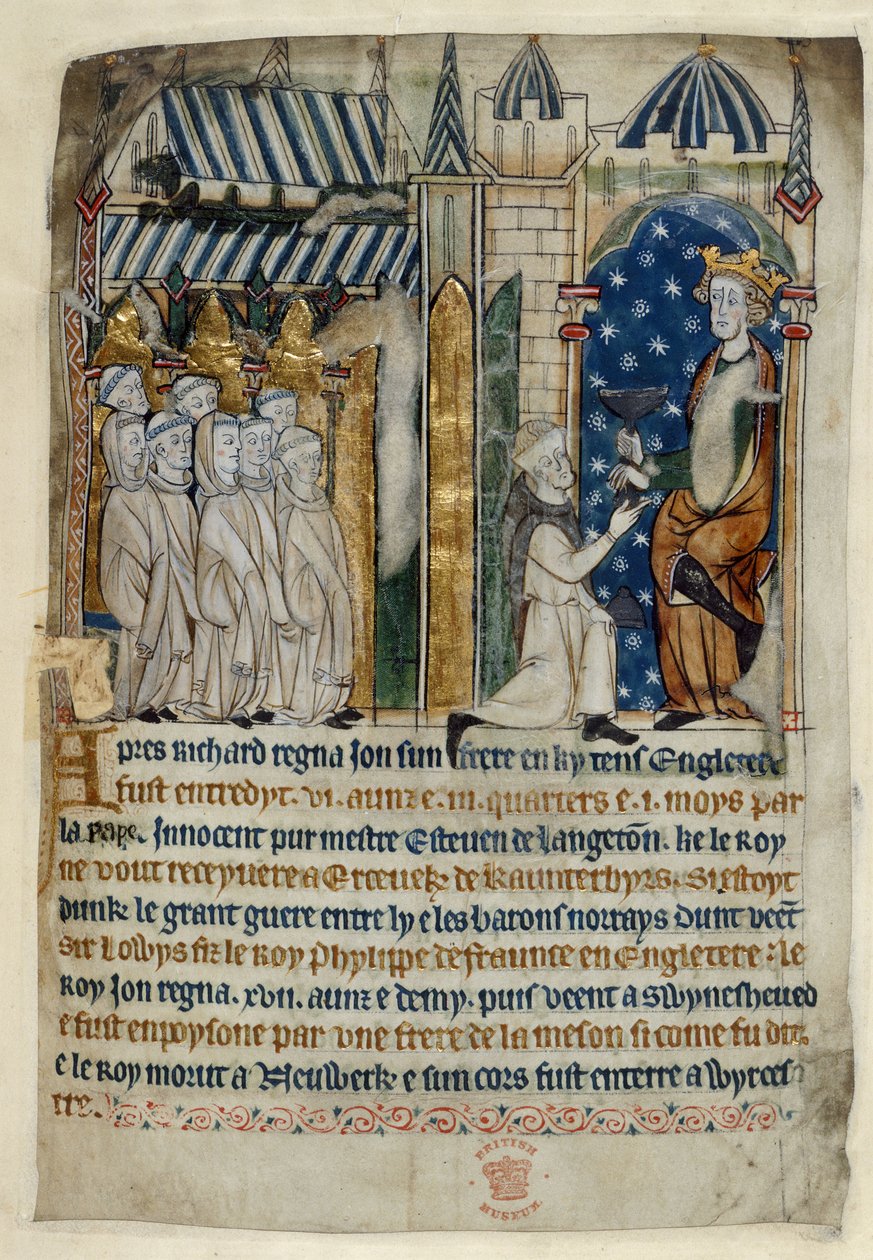 Apres Richard regna Jon sun frere en ky tens Engletere
fust entredyt. vi. aunz e. iii. quarters e. i. moys par
la Pape. Innocent pur mestre Esteuen de Langeton. ke le Roy
ne vout receyuere a Erceuekꝫ de Kaunterbyrs. Si estoyt
dunk le grant guere entre ly e les barons norrays dunt veet
Sir Lowys fiz le Roy Phylippe de Fraunce en Engletere : le
Roy Jon regna. xvii. aunz e demy. puis veent a Swynesheued
e fust enpoysone par vne frere de la meson si come fu dit.
e le Roy morut a Neuwerk e sun cors fust enterre a Wyrces
tre.
BRITISH
MUSEUM